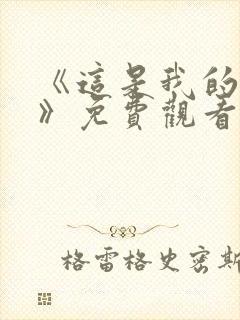 《這是我的
》免費觀看
格雷格史密斯